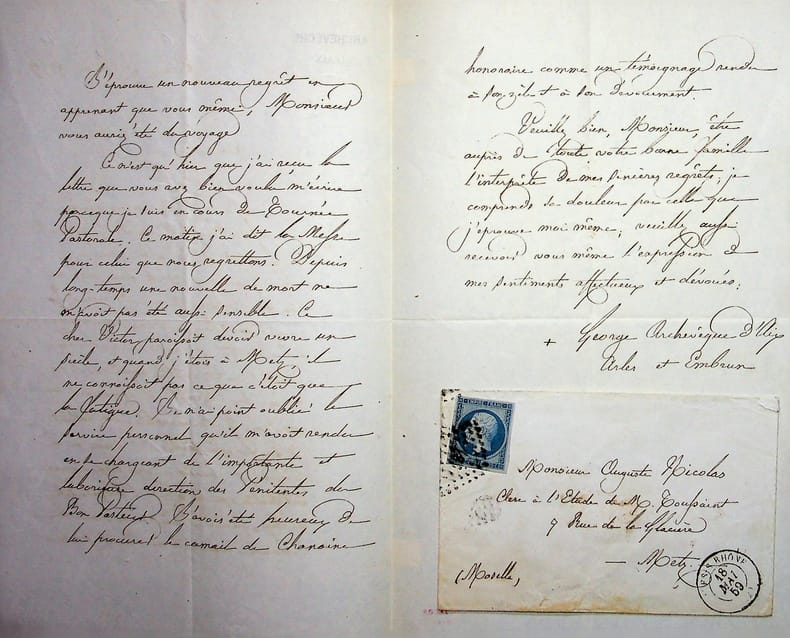 J'éprouve un nouveau regrèt en
apprenant que vous même, Monsieur
vous auriez été du voyage
Ce n'est qu'hier que j'ai reçu la
lettre que vous avez bien voulu m'écrire
parceque je suis en cours de Tournée
Pastorale. Ce matin j'ai dit la Messe
pour celui que nous regrettons. Depuis
long-temps une nouvelle de mort ne
m'avoit pas été aussi sensible. Ce
cher Victor paroissoit devoir vivre un
siècle, et quand j'étois à Metz, il
ne connoissoit pas ce que c'étoit que
la fatigue. Je n'ai point oublié le
service personnel qu'il m'avoit rendu
en se chargeant de l'importante et
laborieuse direction des Pénitentes du
Bon Pasteur. J'avois été heureux de
lui procurer le camail de Chanoine
honoraire comme un témoignage rendu
à son zèle et à son dévouement.
Veuillez bien, Monsieur, être
auprès de toute votre bonne famille
l'interprète de mes sincères regrèts; je
comprends sa douleur par celle que
j'éprouve moi même; veuillez aussi
recevoir vous même l'expression de
mes sentiments affectueux et dévoués.
+ George Archevêque d'Aix
Arles et Embrun
EMPIRE FRANC
Monsieur Auguste Nicolas
Clerc à l'Etude de M. Toussaint
7 Rue de la Glacière
— Metz
(Moselle)
RHONE
18
MAI
59
ARCHEVÊCHÉ
D'AIX